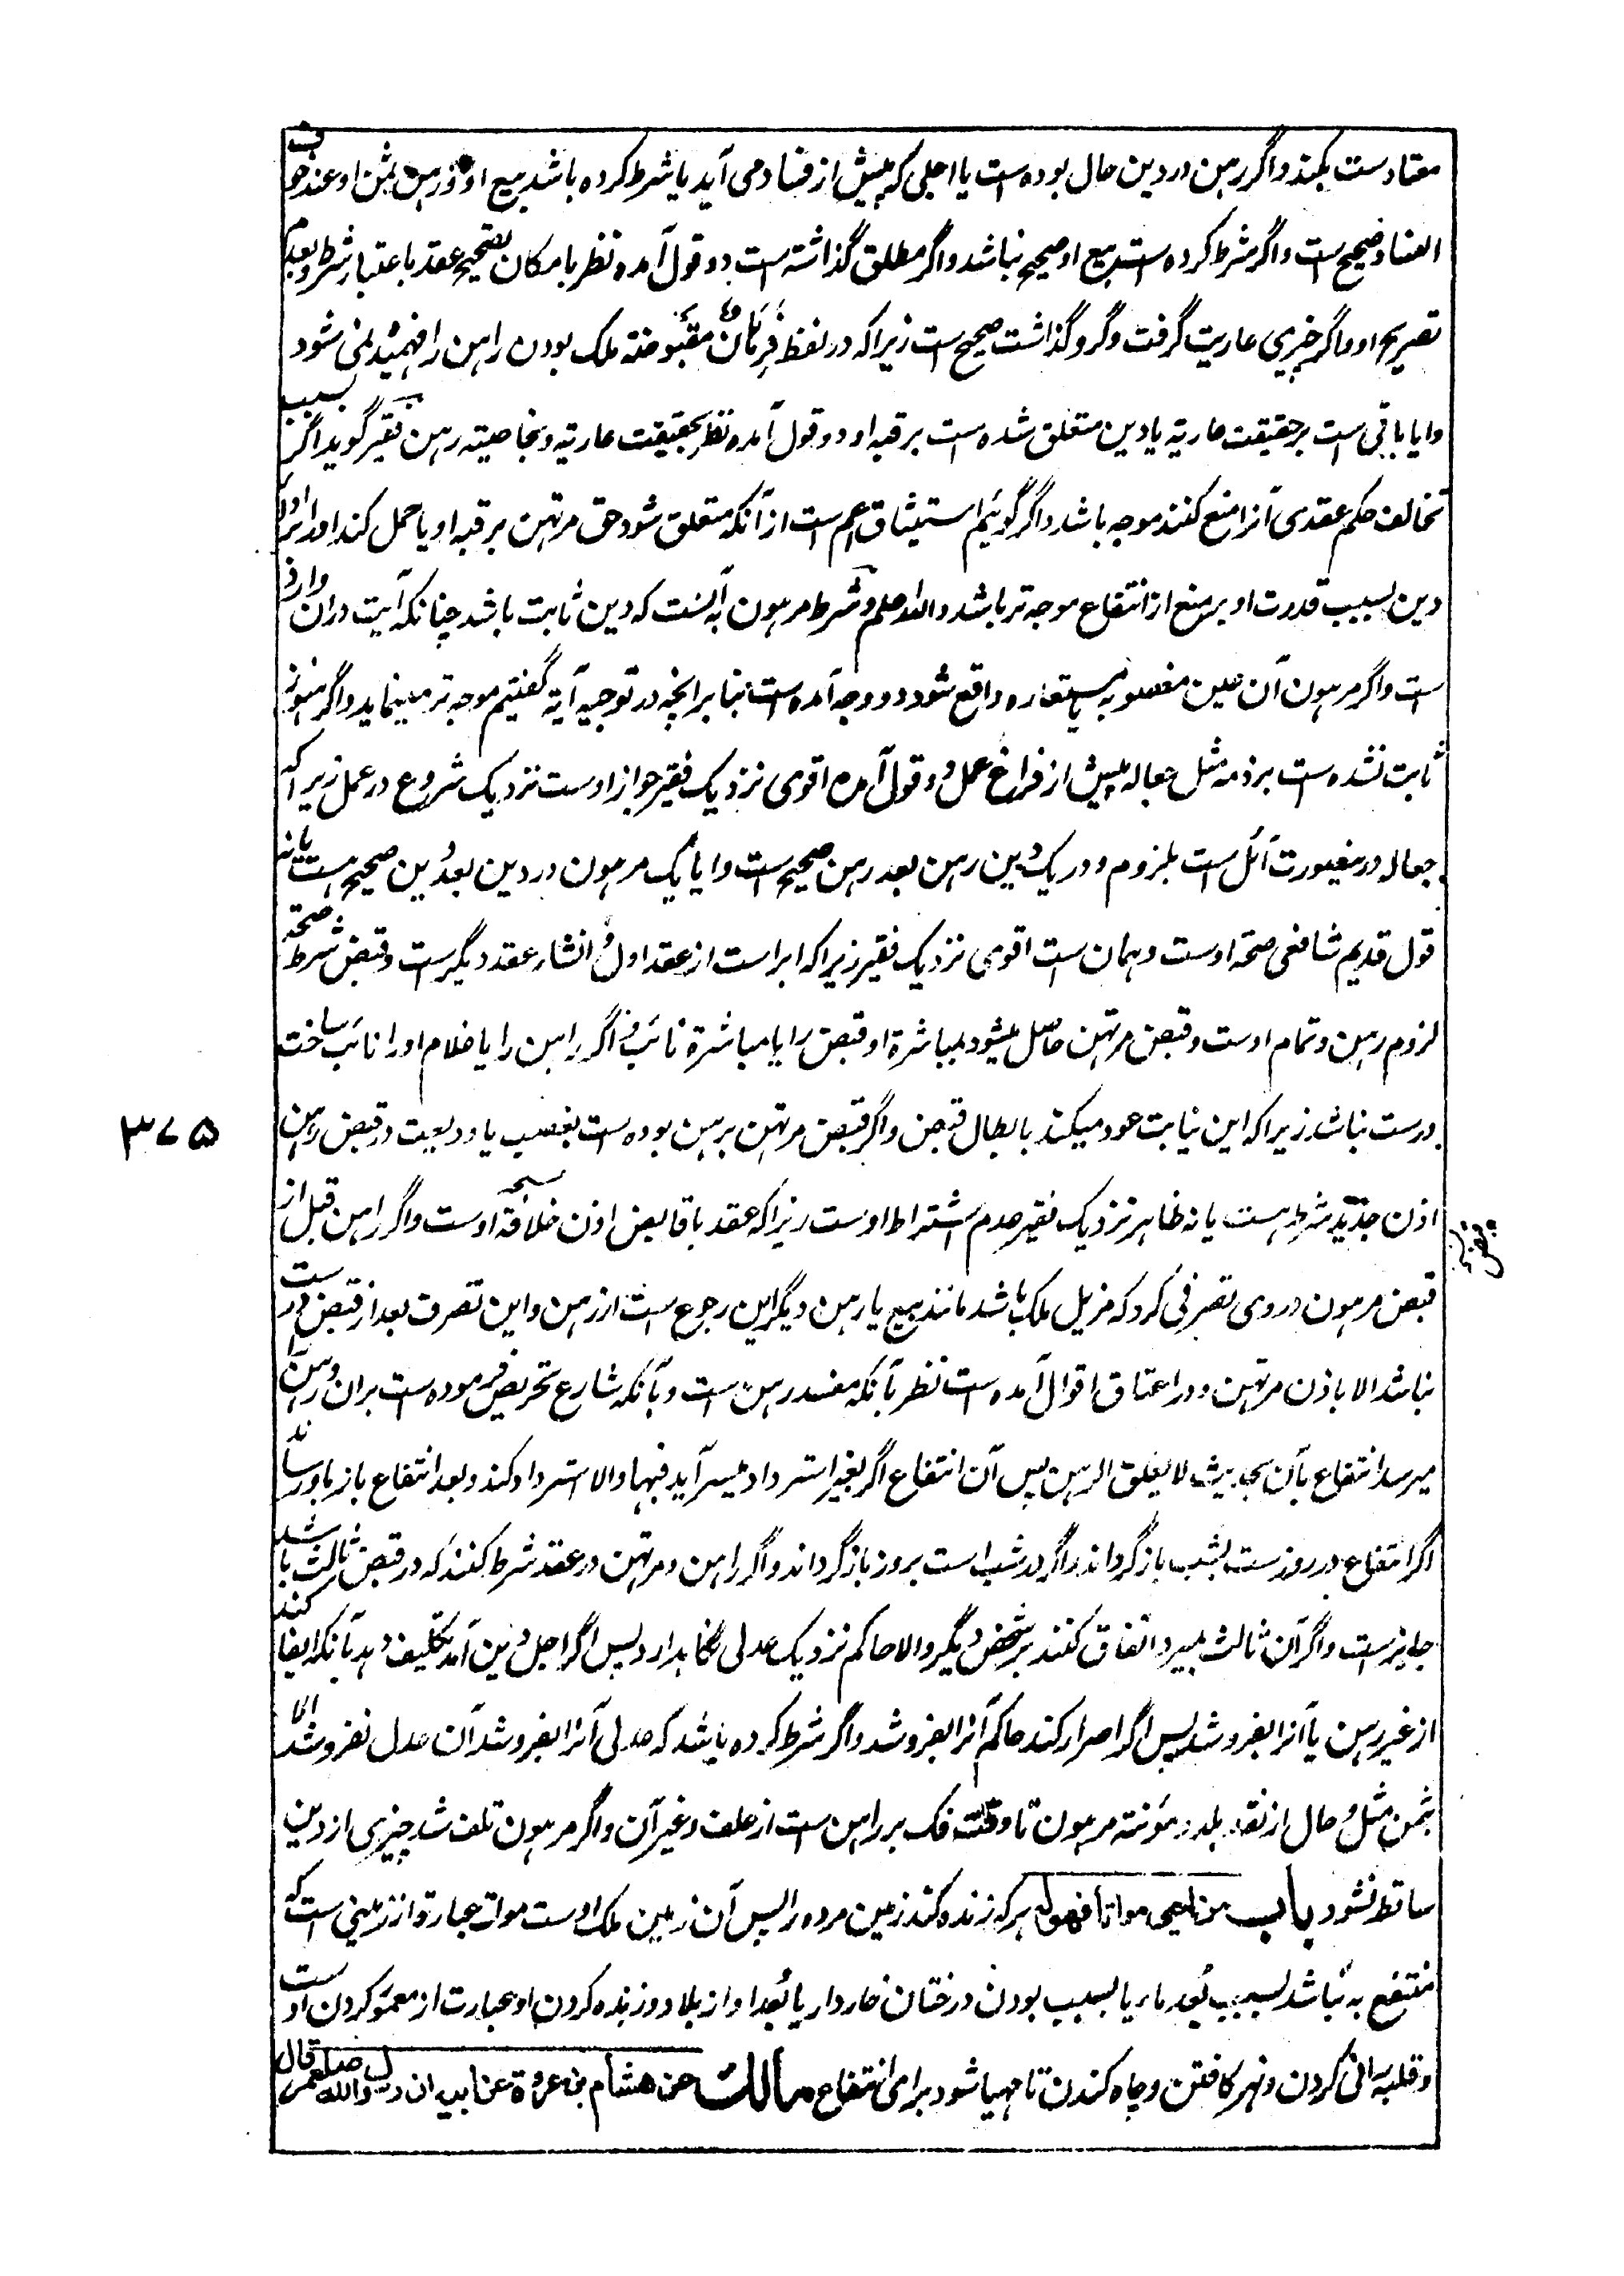 معتادست بکند واگر رهن در دین حال بوده است یا اجلی که پیش از فساد می آید یا شرط کرده باشد بیع او و رهن ثمن او عند خوف
الفساد صحیح ست واگر شرط کرده است بیع او صحیح نباشد واگر مطلق گذاشته است دو قول آمده نظر بامکان تصحیح عقد باعتبار شرط وبعدم
تصریح او واگر چیزی عاریت گرفت وگرو گذاشت صحیح است زیراکه در لفظ فَرِهَانٌ مَقْبُوضَة ملک بودن راهن را فهمیده نمی شود
وایا باقی است بر حقیقت عاریة یا دین متعلق شده است برقبه او دو قول آمده نظر بحقیقت عاریة وبخاصیته رهن فقیر گوید اگر بسبب
تخالف حکم عقدی آنرا منع کنند موجه باشد واگر گوئیم استیثاق اعم است از آنکه متعلق شود حق مرتهن برقبه او یا حمل کند اورا بر ادای
دین بسبب قدرت او بر منع از انتفاع موجه تر باشد والله اعلم وشرط مرهون به آنست که دین ثابت باشد چنانکه آیت دران وارد
ست واگر مرهون آن عین مغصوبه یا مستعاره واقع شود دو وجه آمده است بنا برانچه در توجیه آیة گفتیم موجه تر مینماید واگر هنوز
ثابت نشده ست بر ذمه مثل جعاله پیش از فراغ عمل دو قول آمده اقوی نزدیک فقیر جواز اوست نزدیک شروع در عمل زیراکه
جعاله درینصورت آئل است بلزوم ودر یک دین رهن بعد رهن صحیح است وایا یک مرهون در دین بعد دین صحیح هست یا نه
قول قدیم شافعی صحة اوست وهمان ست اقوی نزدیک فقیر زیراکه ابرا ست از عقد اول و انشاء عقد دیگرست وقبض شرط صحة
لزوم رهن وتمام اوست وقبض مرتهن حاصل میشود بمباشرة او قبض را یا مباشرة نائب او اگر راهن را یا غلام اورا نائب ساخت
درست نباشد زیراکه این نیابت عود میکند بابطال قبض واگر قبض مرتهن بر رهن بوده است بغصب یا ودیعت در قبض رهن
اذن جدید شرط هست یا نه ظاهر نزدیک فقیر عدم اشتراط اوست زیراکه عقد با قابض اذن خلافة اوست واگر راهن قبل از
قبض مرهون در وی تصرفی کرد که مزیل ملک باشد مانند بیع یا رهن دیگر این رجوع ست از رهن واین تصرف بعد از قبض درست
نباشد الا باذن مرتهن ودر اعتاق اقوال آمده است نظر بآنکه مفسد رهن است وبآنکه شارع تحریض فرموده است بران وراهن را
میرسد انتفاع بآن بحدیث لا یغلق الرهن پس آن انتفاع اگر بغیر استرداد میسر آید فبها والا استرداد کند وبعد انتفاع باز باو رساند
اگر انتفاع در روزست بشب باز گرداند واگر در شب است بروز باز گرداند واگر راهن ومرتهن در عقد شرط کنند که در قبض ثالث باشد
جایزست واگر آن ثالث بمیرد اتفاق کنند بر شخص دیگر والا حاکم نزدیک عدلی نگاهدارد پس اگر اجل دین آمد تکلیف دهد بآنکه ایفا کند
از غیر رهن یا آنرا بفروشد پس اگر اصرار کند حاکم آنرا بفروشد واگر شرط کرده باشد که عدلی آنرا بفروشد آن عدل نفروشد الا
بثمن مثل و حال از نقد بلد ومؤنته مرهون تا وقت فک بر راهن ست از علف وغیر آن واگر مرهون تلف شد چیزی از دین
ساقط نشود باب من احیی مواتا فهو له هر که زنده کند زمین مرده را پس آن زمین ملک اوست موات عبارة از زمینی است که
منتفع به نباشد بسبب بُعد ماء یا بسبب بودن درختان خاردار یا بُعد او از بلاد وزنده کردن او عبارت از معمور کردن اوست
وقلبه رانی کردن ونهر کافتن وچاه کندن تا مهیا شود برای انتفاع مالک عن هشام بن عروة عن ابیه ان رسول الله صلعم قال
۳۷۵